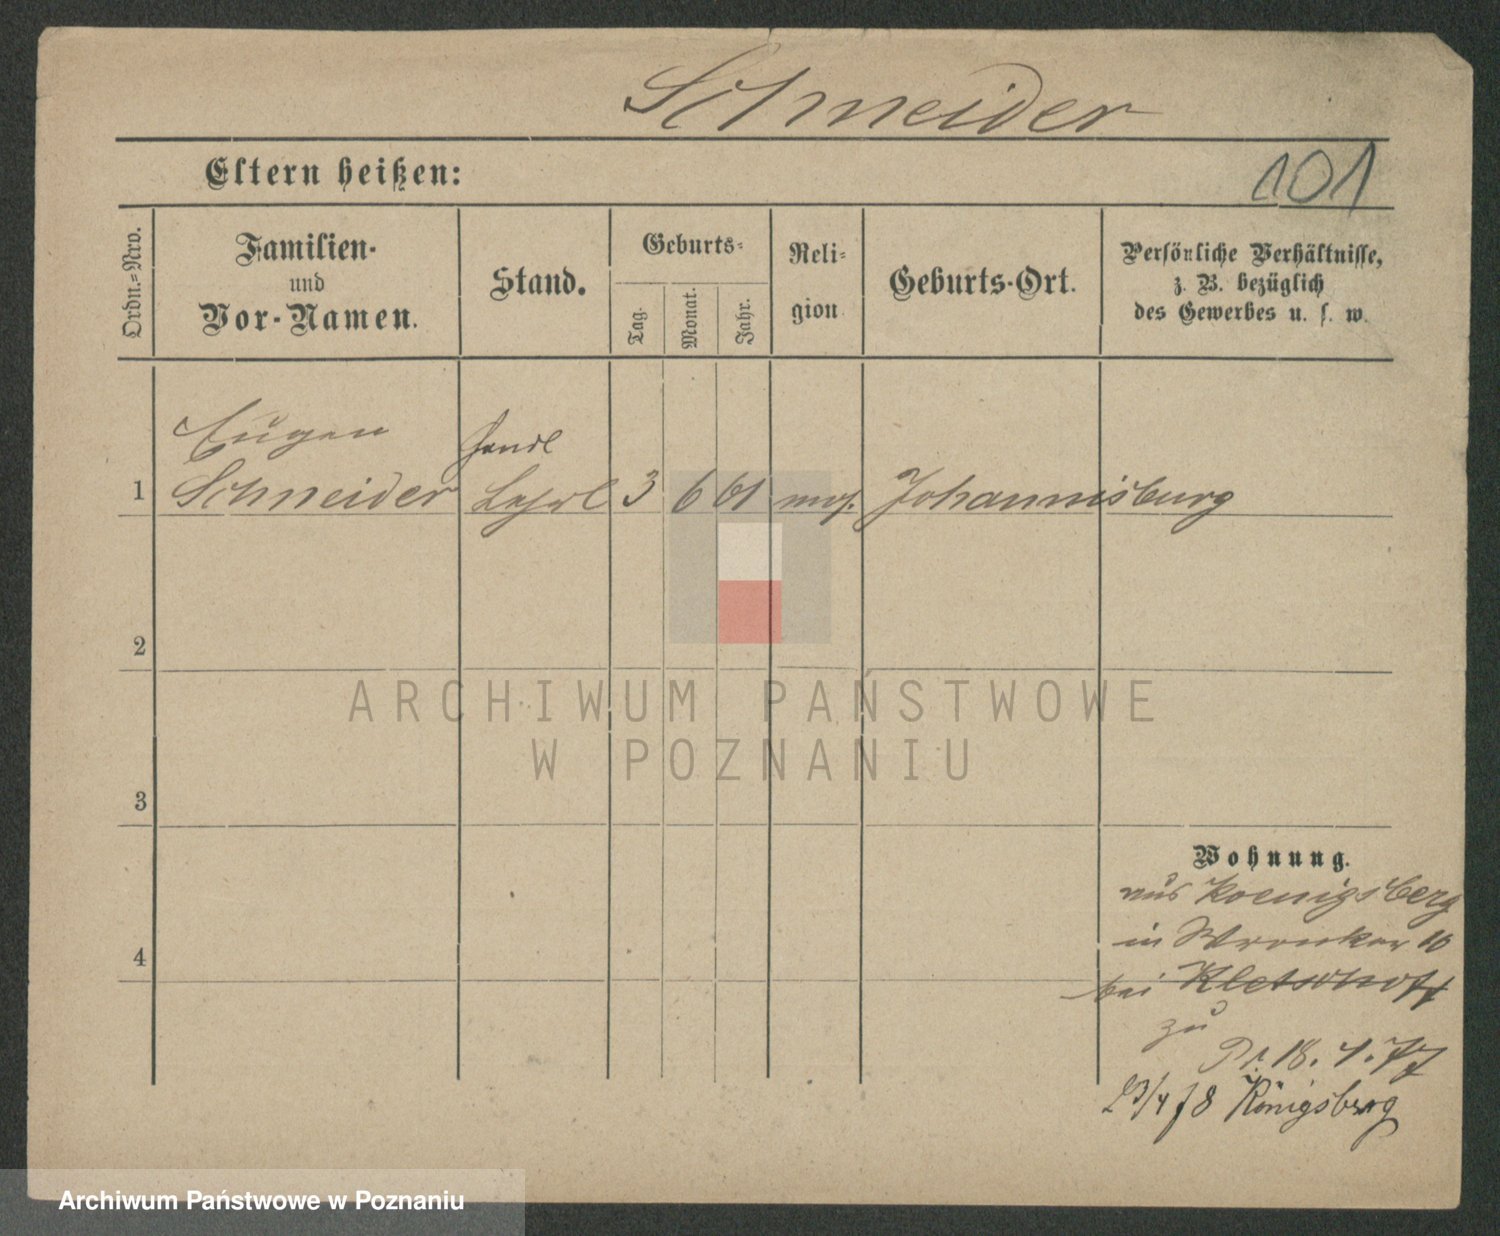 Schneider
Eltern heißen:
101
Ordn.-Nro.
Familien-
und
Vor-Namen.
Stand.
Geburts-
Tag.
Monat.
Jahr.
Reli-
gion
Geburts-Ort.
Persönliche Verhältnisse,
z. B. bezüglich
des Gewerbes u. s. w.
Eugen
Handl
1 Schneider Lehrl 3 6 61 mos. Johannisburg
2
ARCHIWUM PAŃSTWOWE
W POZNANIU
3
Wohnung.
aus Koenigsberg
4
in Wronker 10
bei Kletschoff
zu
18. 4. 77
23/4 78 Königsberg
Archiwum Państwowe w Poznaniu